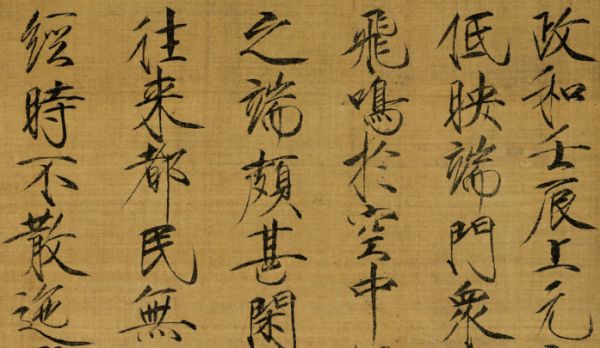 政和壬辰上元
低映端門衆
飛鳴於空中
之端頗甚閑
往来都民無
經時不散迤